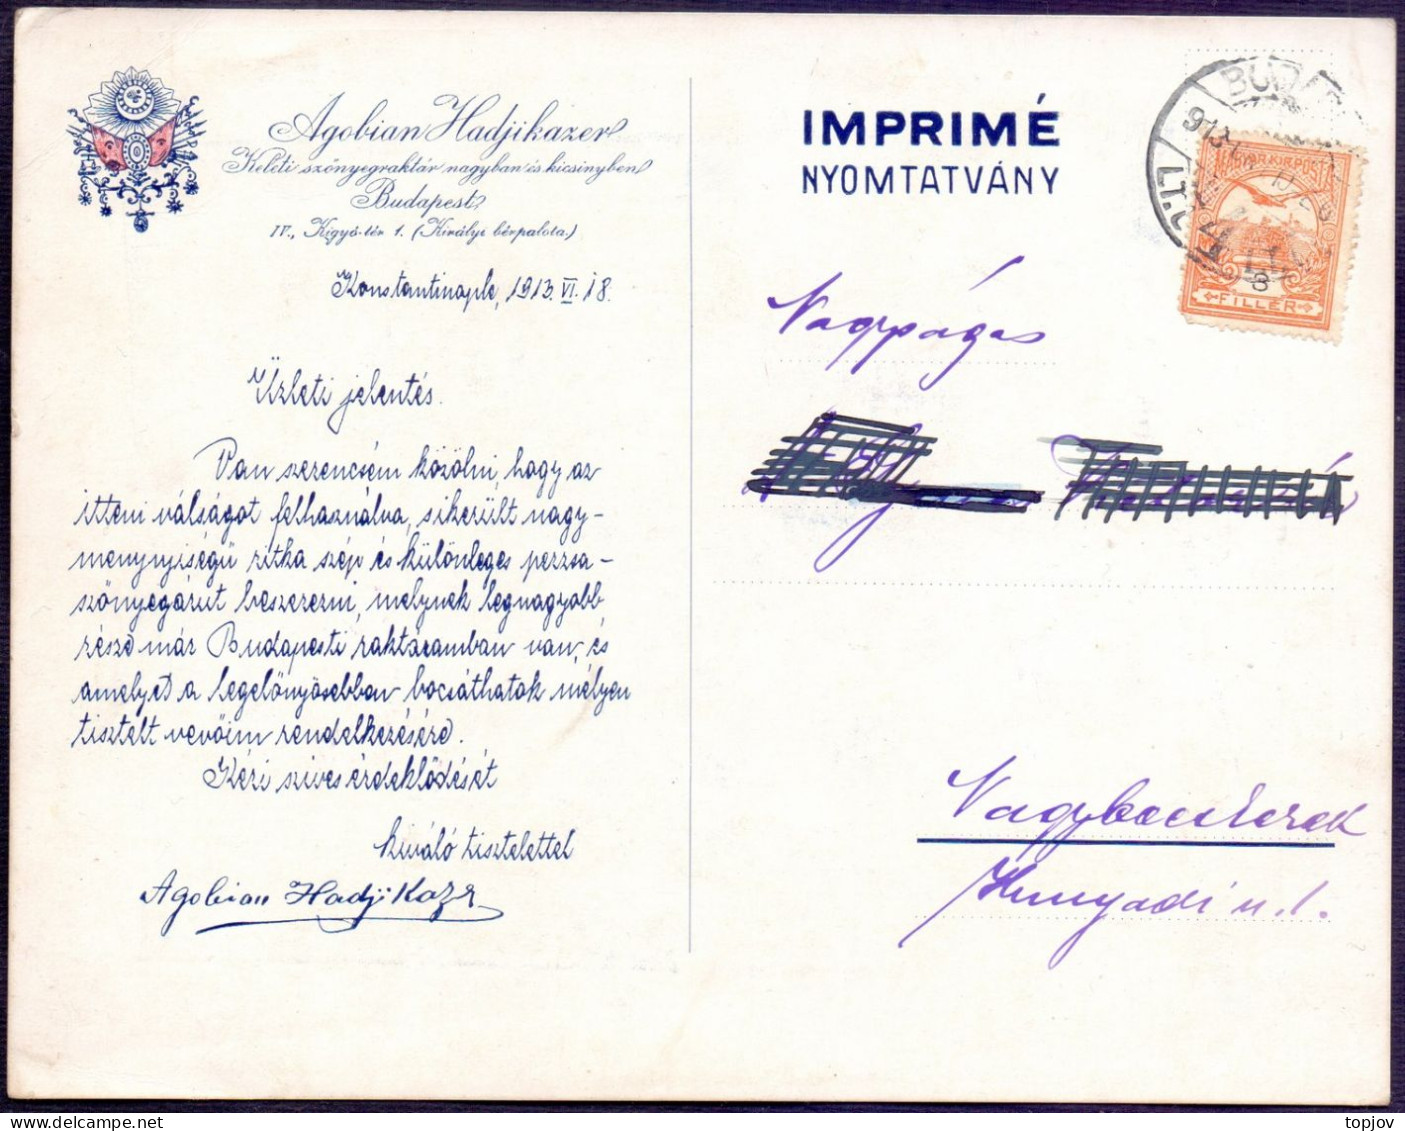 Agobian Hadjikazer
Keleti szőnyegraktár nagyban és kicsinyben
Budapest
IV., Kigyó-tér 1. (Királyi bérpalota.)
Konstantinaple, 1913. VI. 18.
Üzleti jelentés.
Van szerencsém közölni, hogy az
itteni válságot felhasználva, sikerült nagy-
mennyiségű ritka szép és különleges perzsa-
szőnyegárút beszerezni, melynek legnagyobb
része már Budapesti raktáramban van, és
amelyet a legelőnyösebben bocsáthatok mélyen
tisztelt vevőim rendelkezésére.
Kéri szives érdeklődését
kiváló tisztelettel
Agobian Hadjikazer
IMPRIMÉ
NYOMTATVÁNY
MAGYAR KIR. POSTA
FILLÉR
3
Nagyságos
Nagybecskerek
Hunyadi u. 1.
topjov